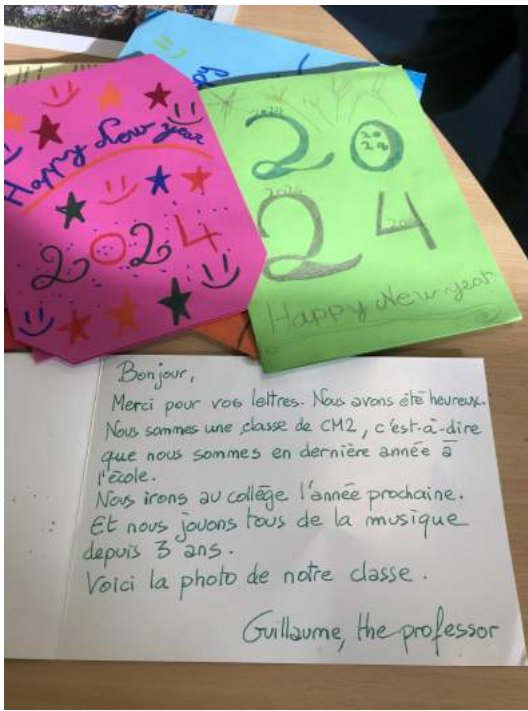 Happy New year
2024
2024
20
2024
24
2024
2024
Happy New year
Bonjour,
Merci pour vos lettres. Nous avons été heureux.
Nous sommes une classe de CM2, c'est-à-dire
que nous sommes en dernière année à
l'école.
Nous irons au collège l'année prochaine.
Et nous jouons tous de la musique
depuis 3 ans.
Voici la photo de notre classe.
Guillaume, the professor